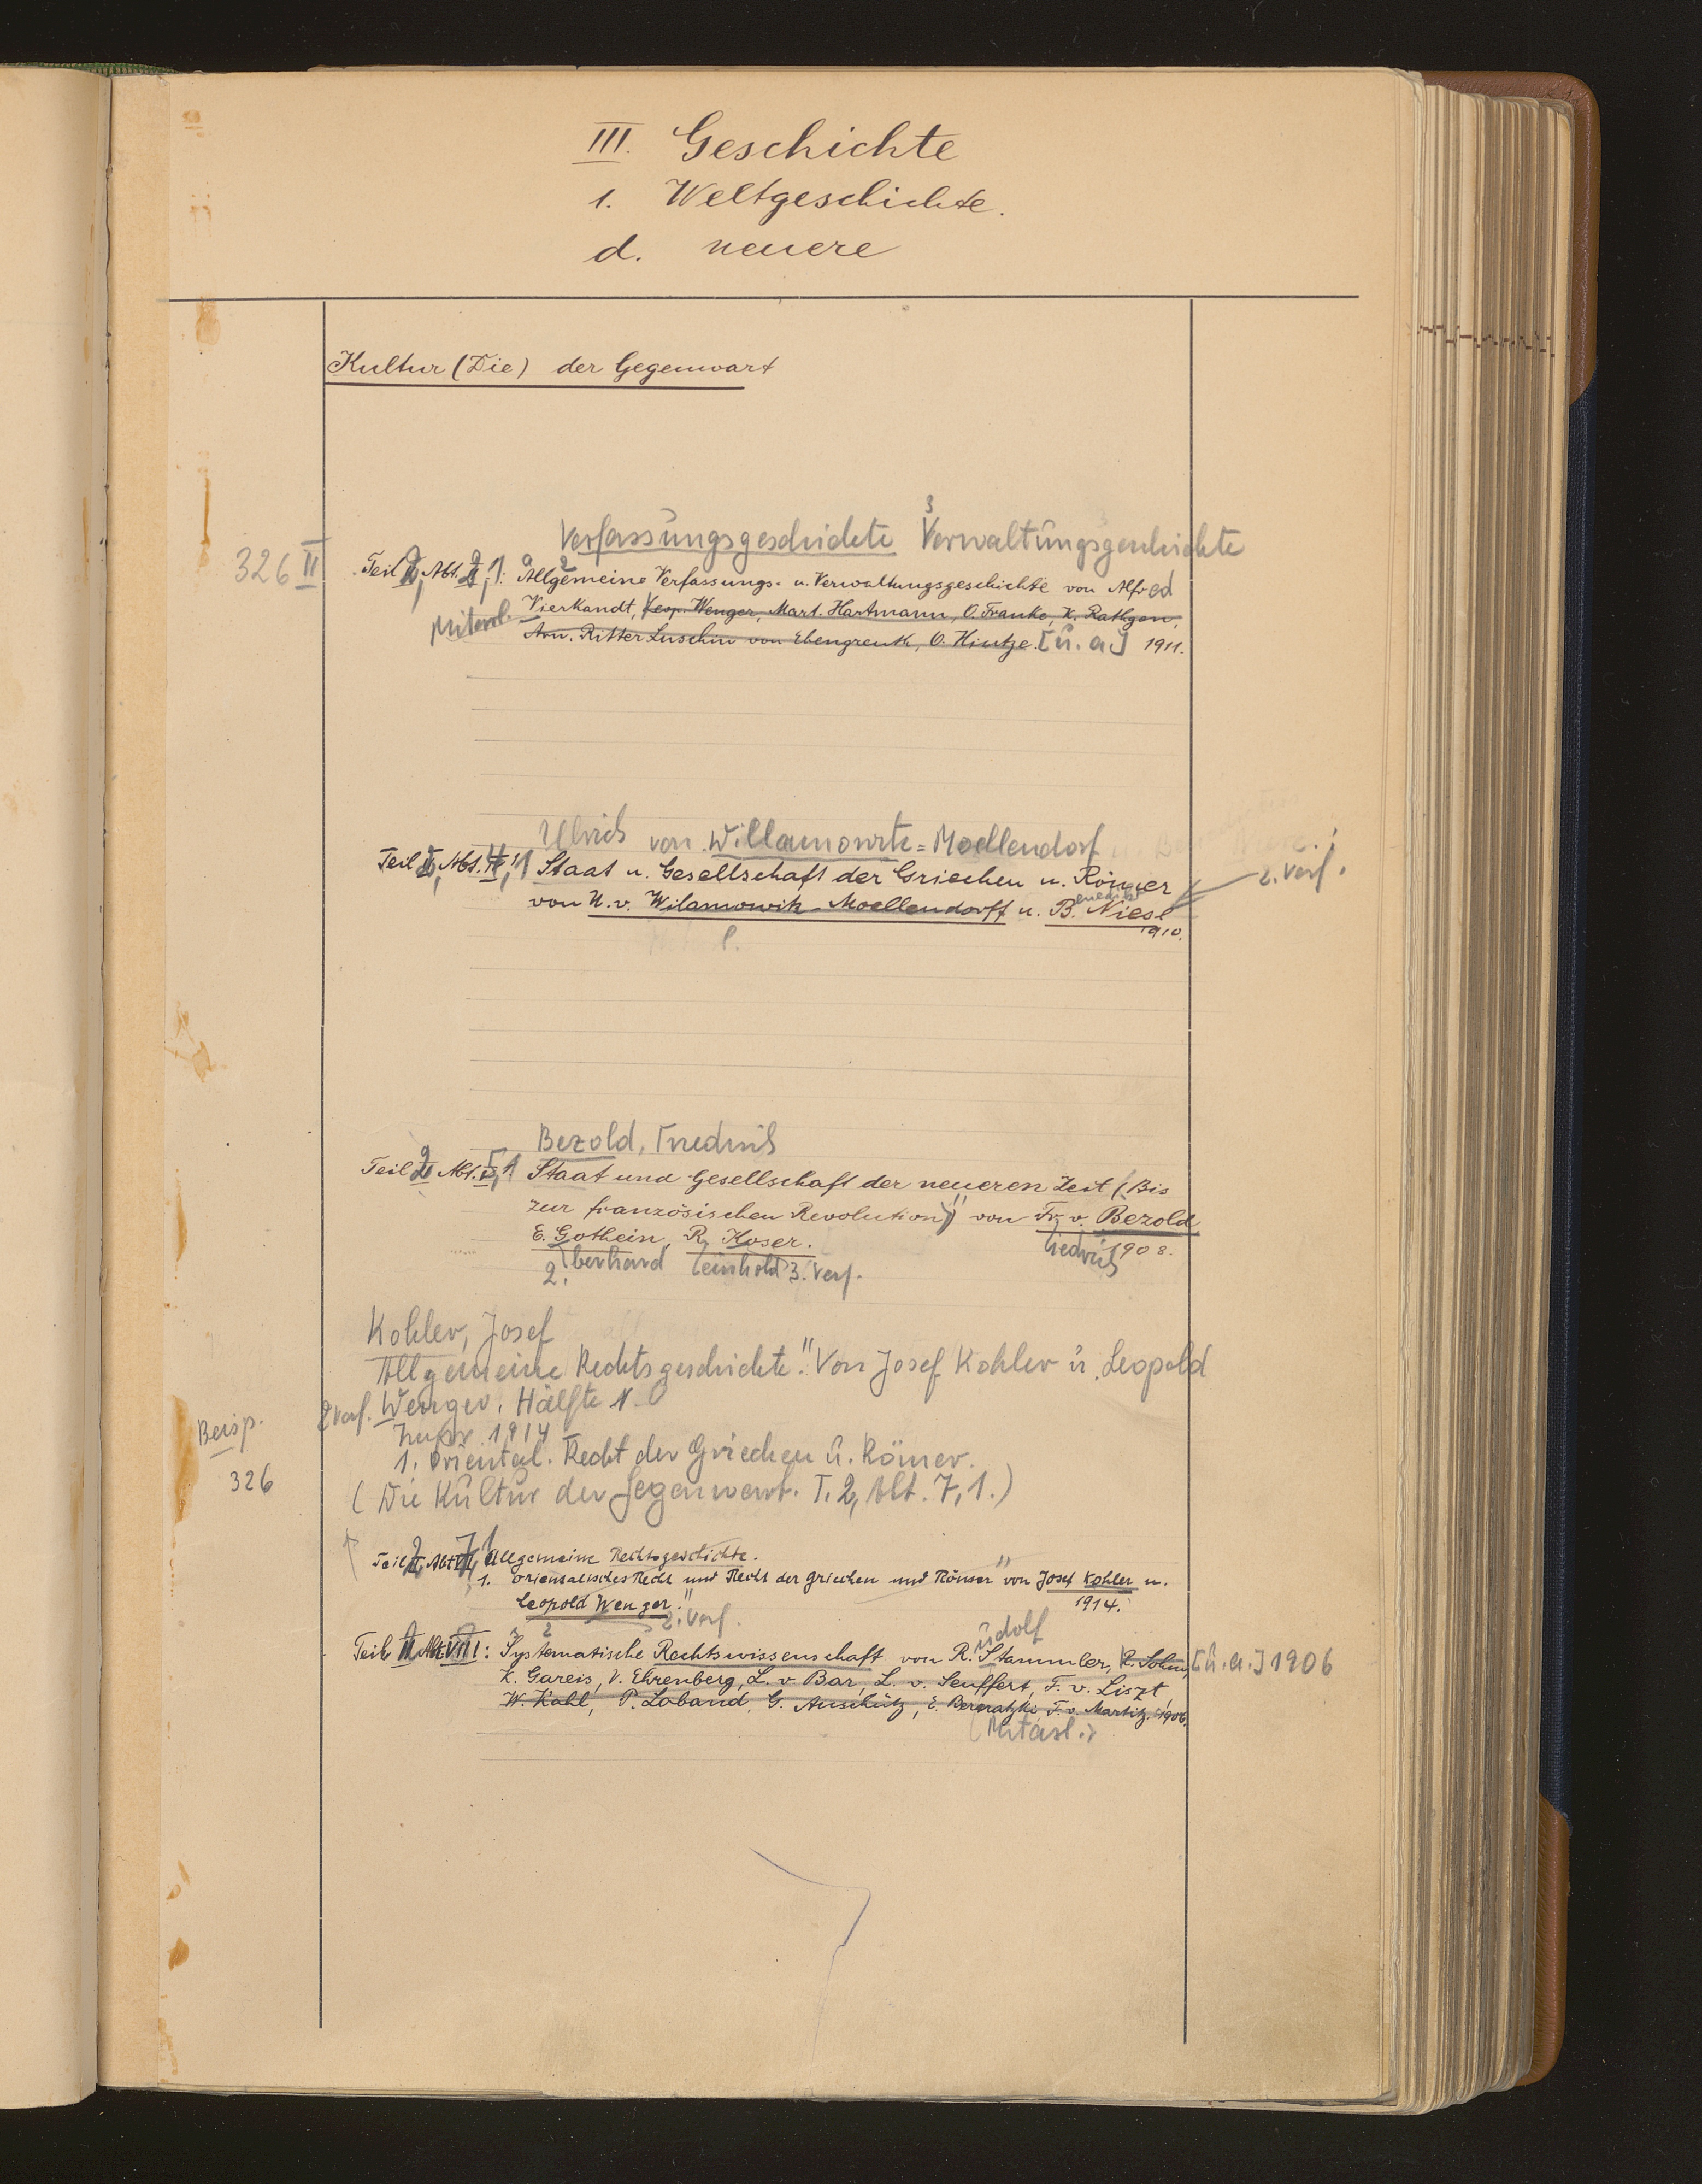 III. Geschichte
1. Weltgeschichte.
d. neuere
Kultur (Die) der Gegenwart
Verfassungsgeschichte Verwaltungsgeschichte
326 II Teil Abt. 1: Allgemeine Verfassungs- u. Verwaltungsgeschichte von Alfred
Vierkandt, Leop. Wenger, Mart. Hartmann, O. Franke, K. Rathgen,
Arn. Ritter Luschin von Ebengreuth, O. Hintze. [u. a.] 1911.
Ulrich von Willamowitz-Moellendorf
Teil Abt. 1 Staat u. Gesellschaft der Griechen u. Römer 2. Verf.
von U. v. Wilamowitz-Moellendorff u. B. Niese
1910.
Bezold, Friedrich
Teil 2 Abt. 5,1 Staat und Gesellschaft der neueren Zeit (Bis
zur französischen Revolution)" von Fr. v. Bezold
E. Gothein, R. Koser. 1908.
2. berhard einhold 3. Verf. iedrich
Kohler, Josef
Allgemeine Rechtsgeschichte." Von Josef Kohler u. Leopold
2 Verf. Wenger. Hälfte 1.
Beisp. 1914
1. Oriental. Recht der Griechen u. Römer.
326 (Die Kultur der Gegenwart. T. 2, Abt. 7,1.)
Teil 2 Abt. 7,1 Allgemeine Rechtsgeschichte.
1. orientalisches Recht und Recht der Griechen und Römer" von Josef Kohler u.
Leopold Wenger." 1914.
2. Verf. udolf
Teil II Abt VIII: Systematische Rechtswissenschaft von R. Stammler, R. Sohm, [u. a.] 1906
K. Gareis, V. Ehrenberg, L. v. Bar, L. v. Seuffert, F. v. Liszt,
W. Kahl, P. Laband, G. Anschütz, E. Bernatzki, F. v. Martitz. 1906.